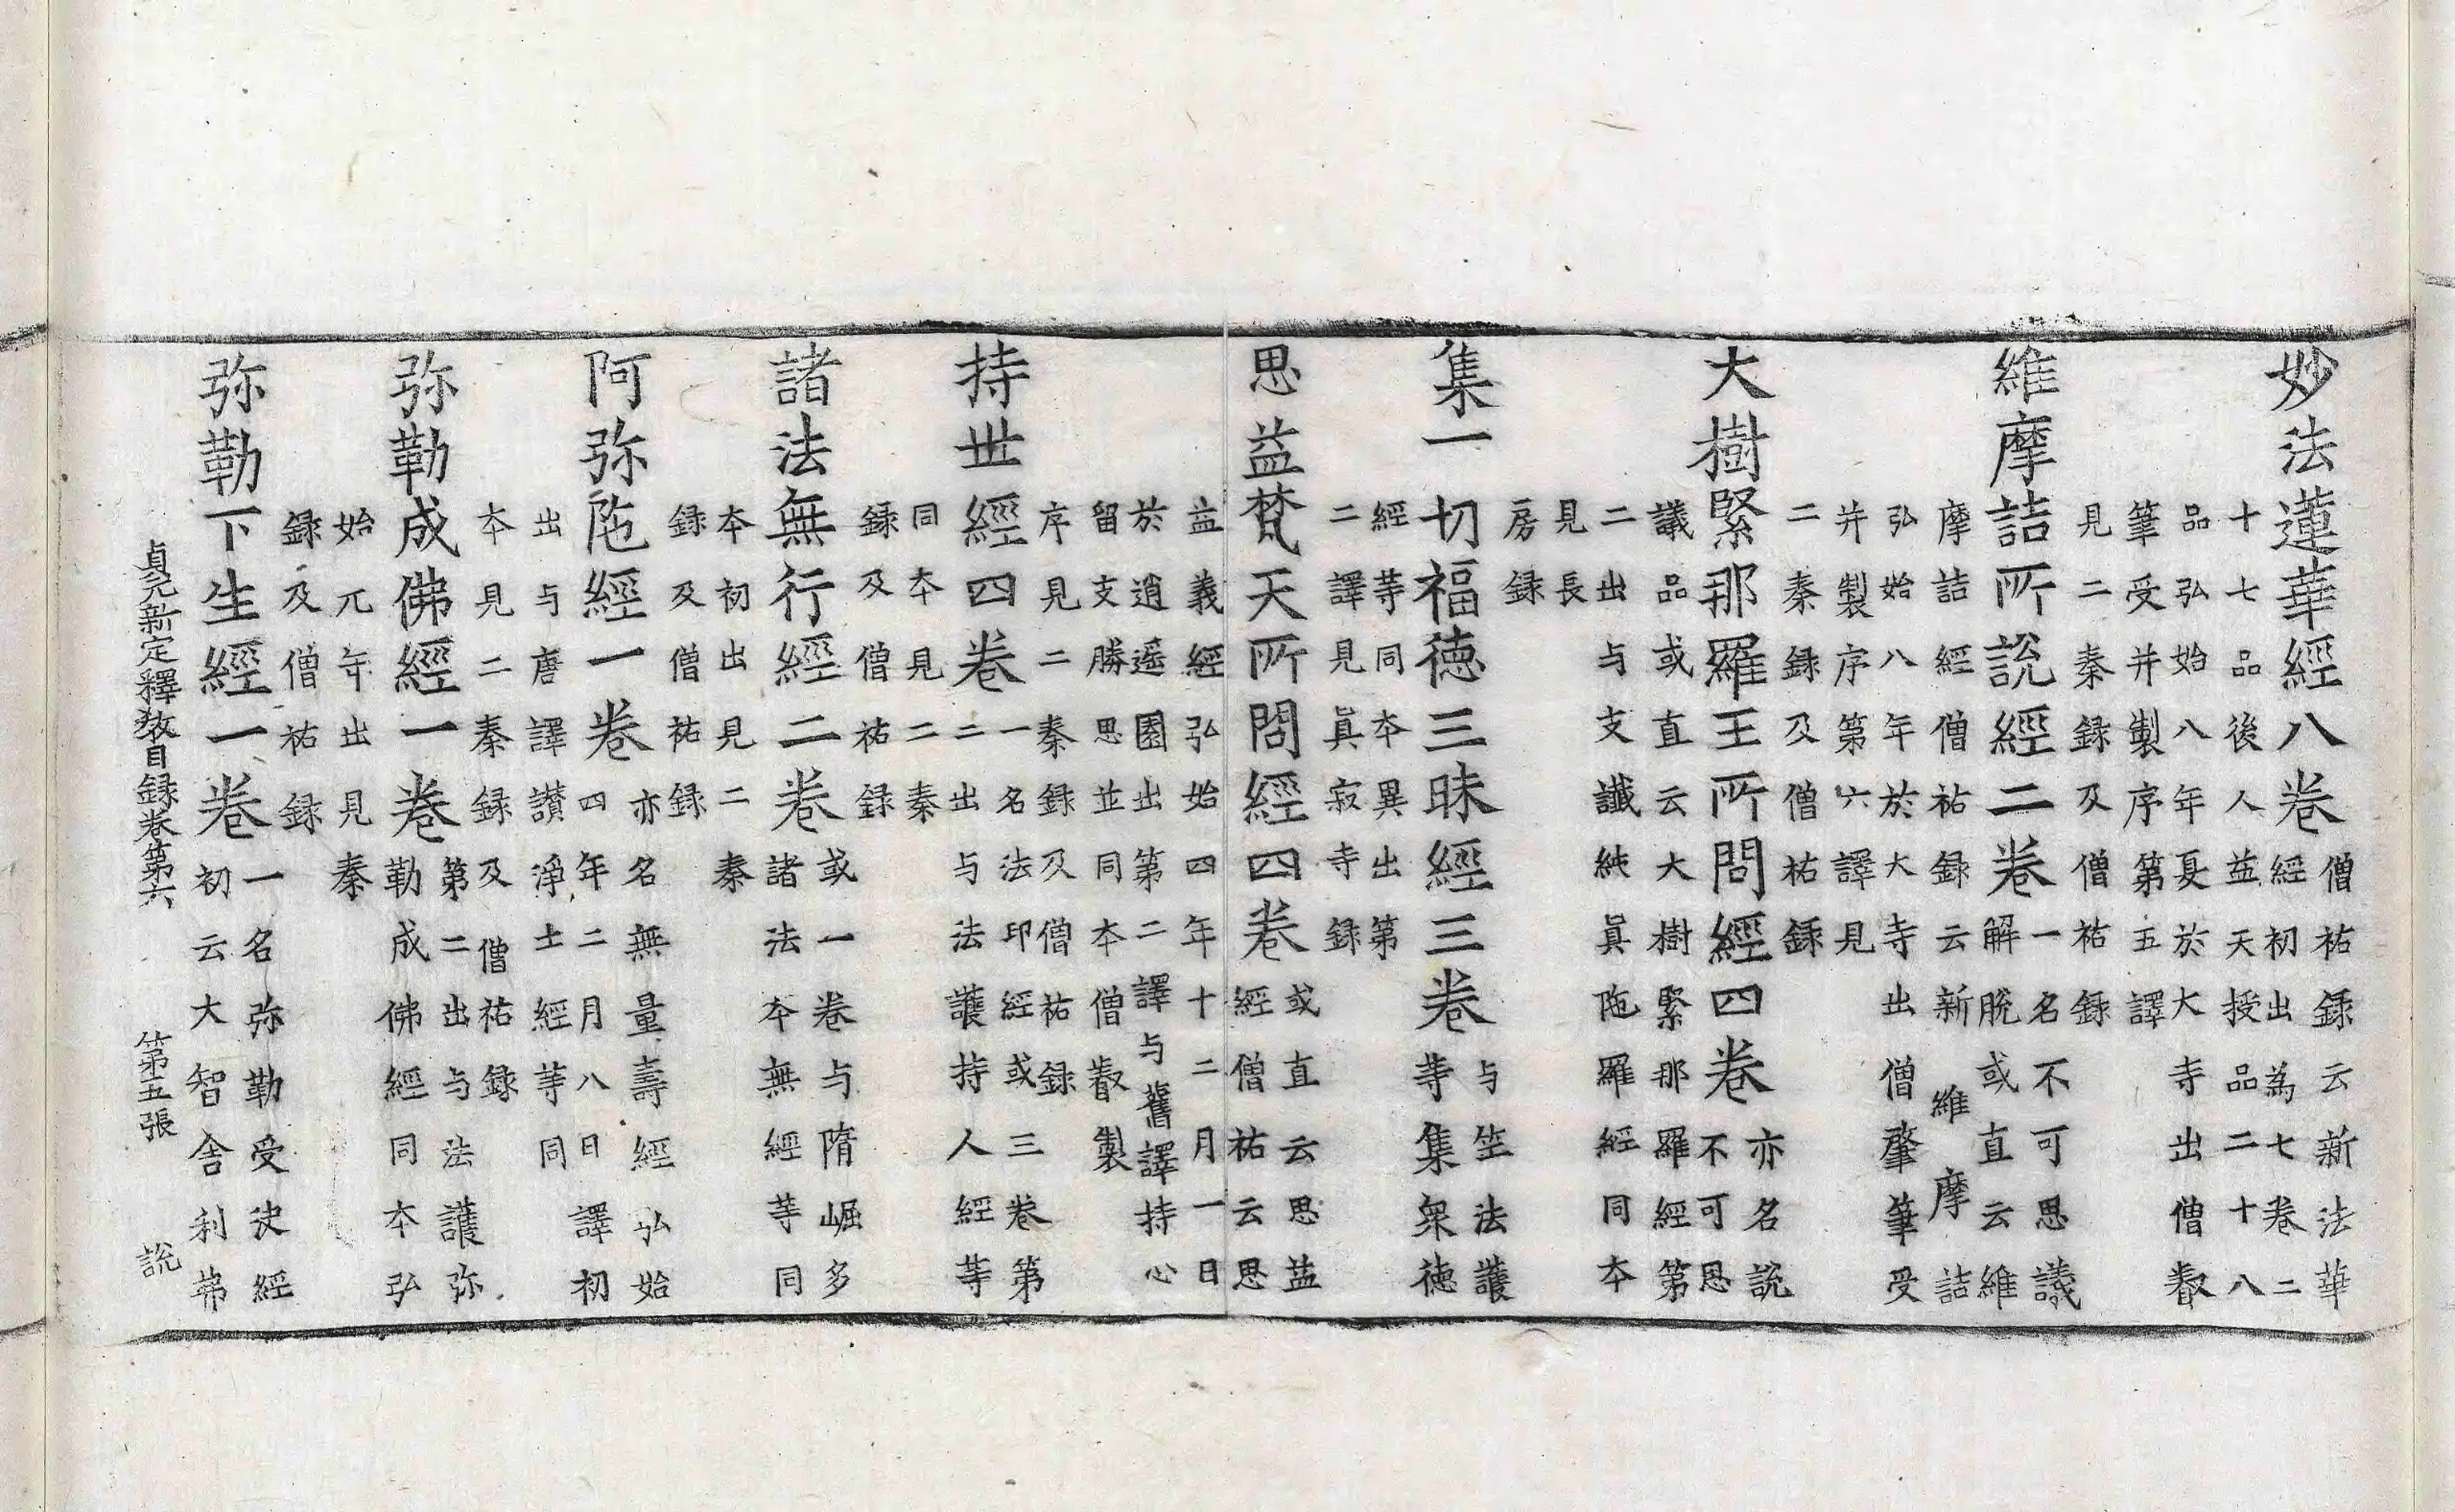 妙法蓮華經八卷
僧祐録云新法華
經初出為七卷二
十七品後人益天授品二十八
品弘始八年夏於大寺出僧叡
筆受并製序第五譯
見二秦録及僧祐録
維摩詰所說經二卷
一名不可思議
解脫或直云維
摩詰經僧祐録云新維摩詰
弘始八年於大寺出僧肇筆受
并製序第六譯見
二秦録及僧祐録
大樹緊那羅王所問經四卷
亦名說
不可思
議品或直云大樹緊那羅經第
二出与支讖純真陁羅經同本
見長
房録
集一切福徳三昧經三卷
与竺法護
等集衆徳
經等同本異出第
二譯見真寂寺録
思益梵天所問經四卷
或直云思益
經僧祐云思
益義經弘始四年十二月一日
於逍遥園出第二譯与舊譯持心
留支勝思並同本僧叡製
序見二秦録及僧祐録
持世經四卷
一名法印經或三卷第
二出与法護持人經等
同本見二秦
録及僧祐録
諸法無行經二卷
或一卷与隋崛多
諸法本無經等同
本初出見二秦
録及僧祐録
阿弥陁經一卷
亦名無量壽經弘始
四年二月八日譯初
出与唐譯讃淨土經等同
本見二秦録及僧祐録
弥勒成佛經一卷
第二出与法護弥
勒成佛經同本弘
始元年出見秦
録及僧祐録
弥勒下生經一卷
一名弥勒受決經
初云大智舍利弗
貞元新定釋教目録卷第六 第五張 說